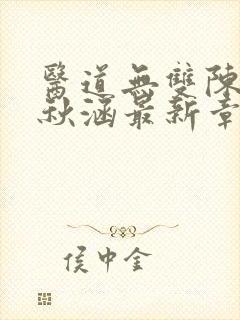 醫道無雙陳
秋涵最新章
侯中金